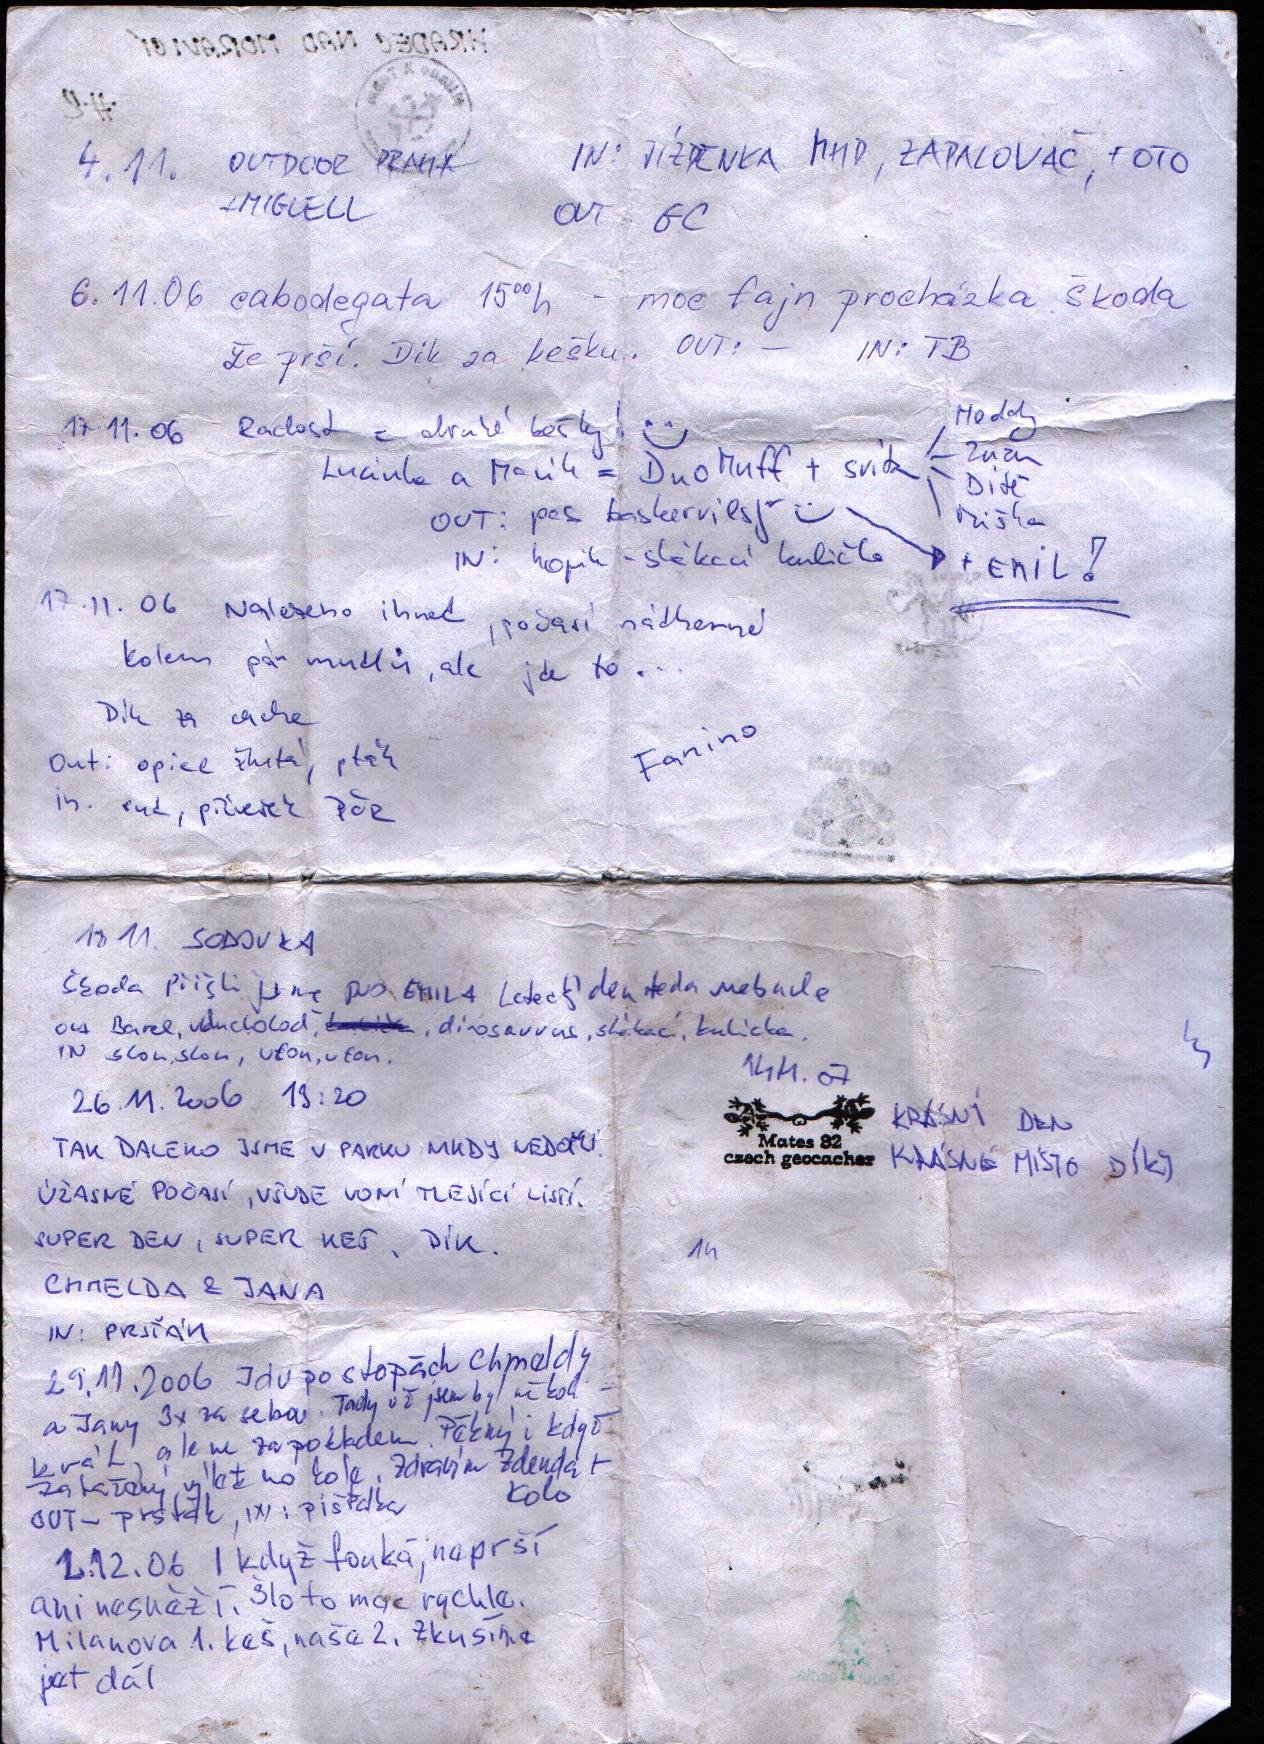 HRADEC NAD MORAVICÍ
4.11. OUTDOOR PRAHA IN: JÍZDENKA MHD, ZAPALOVAČ, FOTO
+MIGLELL OUT GC
6.11.06 cabodegata 15⁰⁰h - moc fajn procházka škoda
že prší. Dík za kešku. OUT: — IN: TB
17 11.06 Radost z druhé kešky!
Lucinka a Mařík = DuoMuff + svita
Meddy
Zuzu
Dítě
Miška
OUT: pes baskervilský
IN: hopík - skákací kulička + EMIL!
17.11.06 Nalezeno ihned, počasí nádherné
kolem pár mudlů, ale jde to...
Dík za cache
Fanino
Out: opice žlutá, pták
in. sud, přívěsek PČR
18 11. SODOVKA
Škoda Přišli jsme pro EMILA Letecký den teda nebude
out Barel, dinosaurus, skákací, kulicka.
IN slon, slon, uton, uton.
26.11.2006 13:20
TAK DALEKO JSME V PARKU NIKDY NEDOŠLI.
ÚŽASNÉ POČASÍ, VŠUDE VONÍ TLEJÍCÍ LISTÍ.
SUPER DEN, SUPER KEŠ. DÍK.
CHMELDA & JANA
IN: PRSŤÁK
29.11.2006 Jdu po stopách Chmeldy
a Jany 3x za sebou. Tady už jsem byl několi-
krát, ale ne za pokladem. Pěkný i když
zatažený výlet na kole. Zdravím Zdenda +
kolo
OUT - prsťák, IN: píšťalka
1.12.06 I když fouká, neprší
ani nesněží. Šlo to moc rychle.
Milanova 1. keš, naše 2. Zkusíme
jet dál
14.11.07
Mates 82
czech geocacher
KRÁSNÍ DEN
KRÁSNÉ MÍSTO DÍKY
14